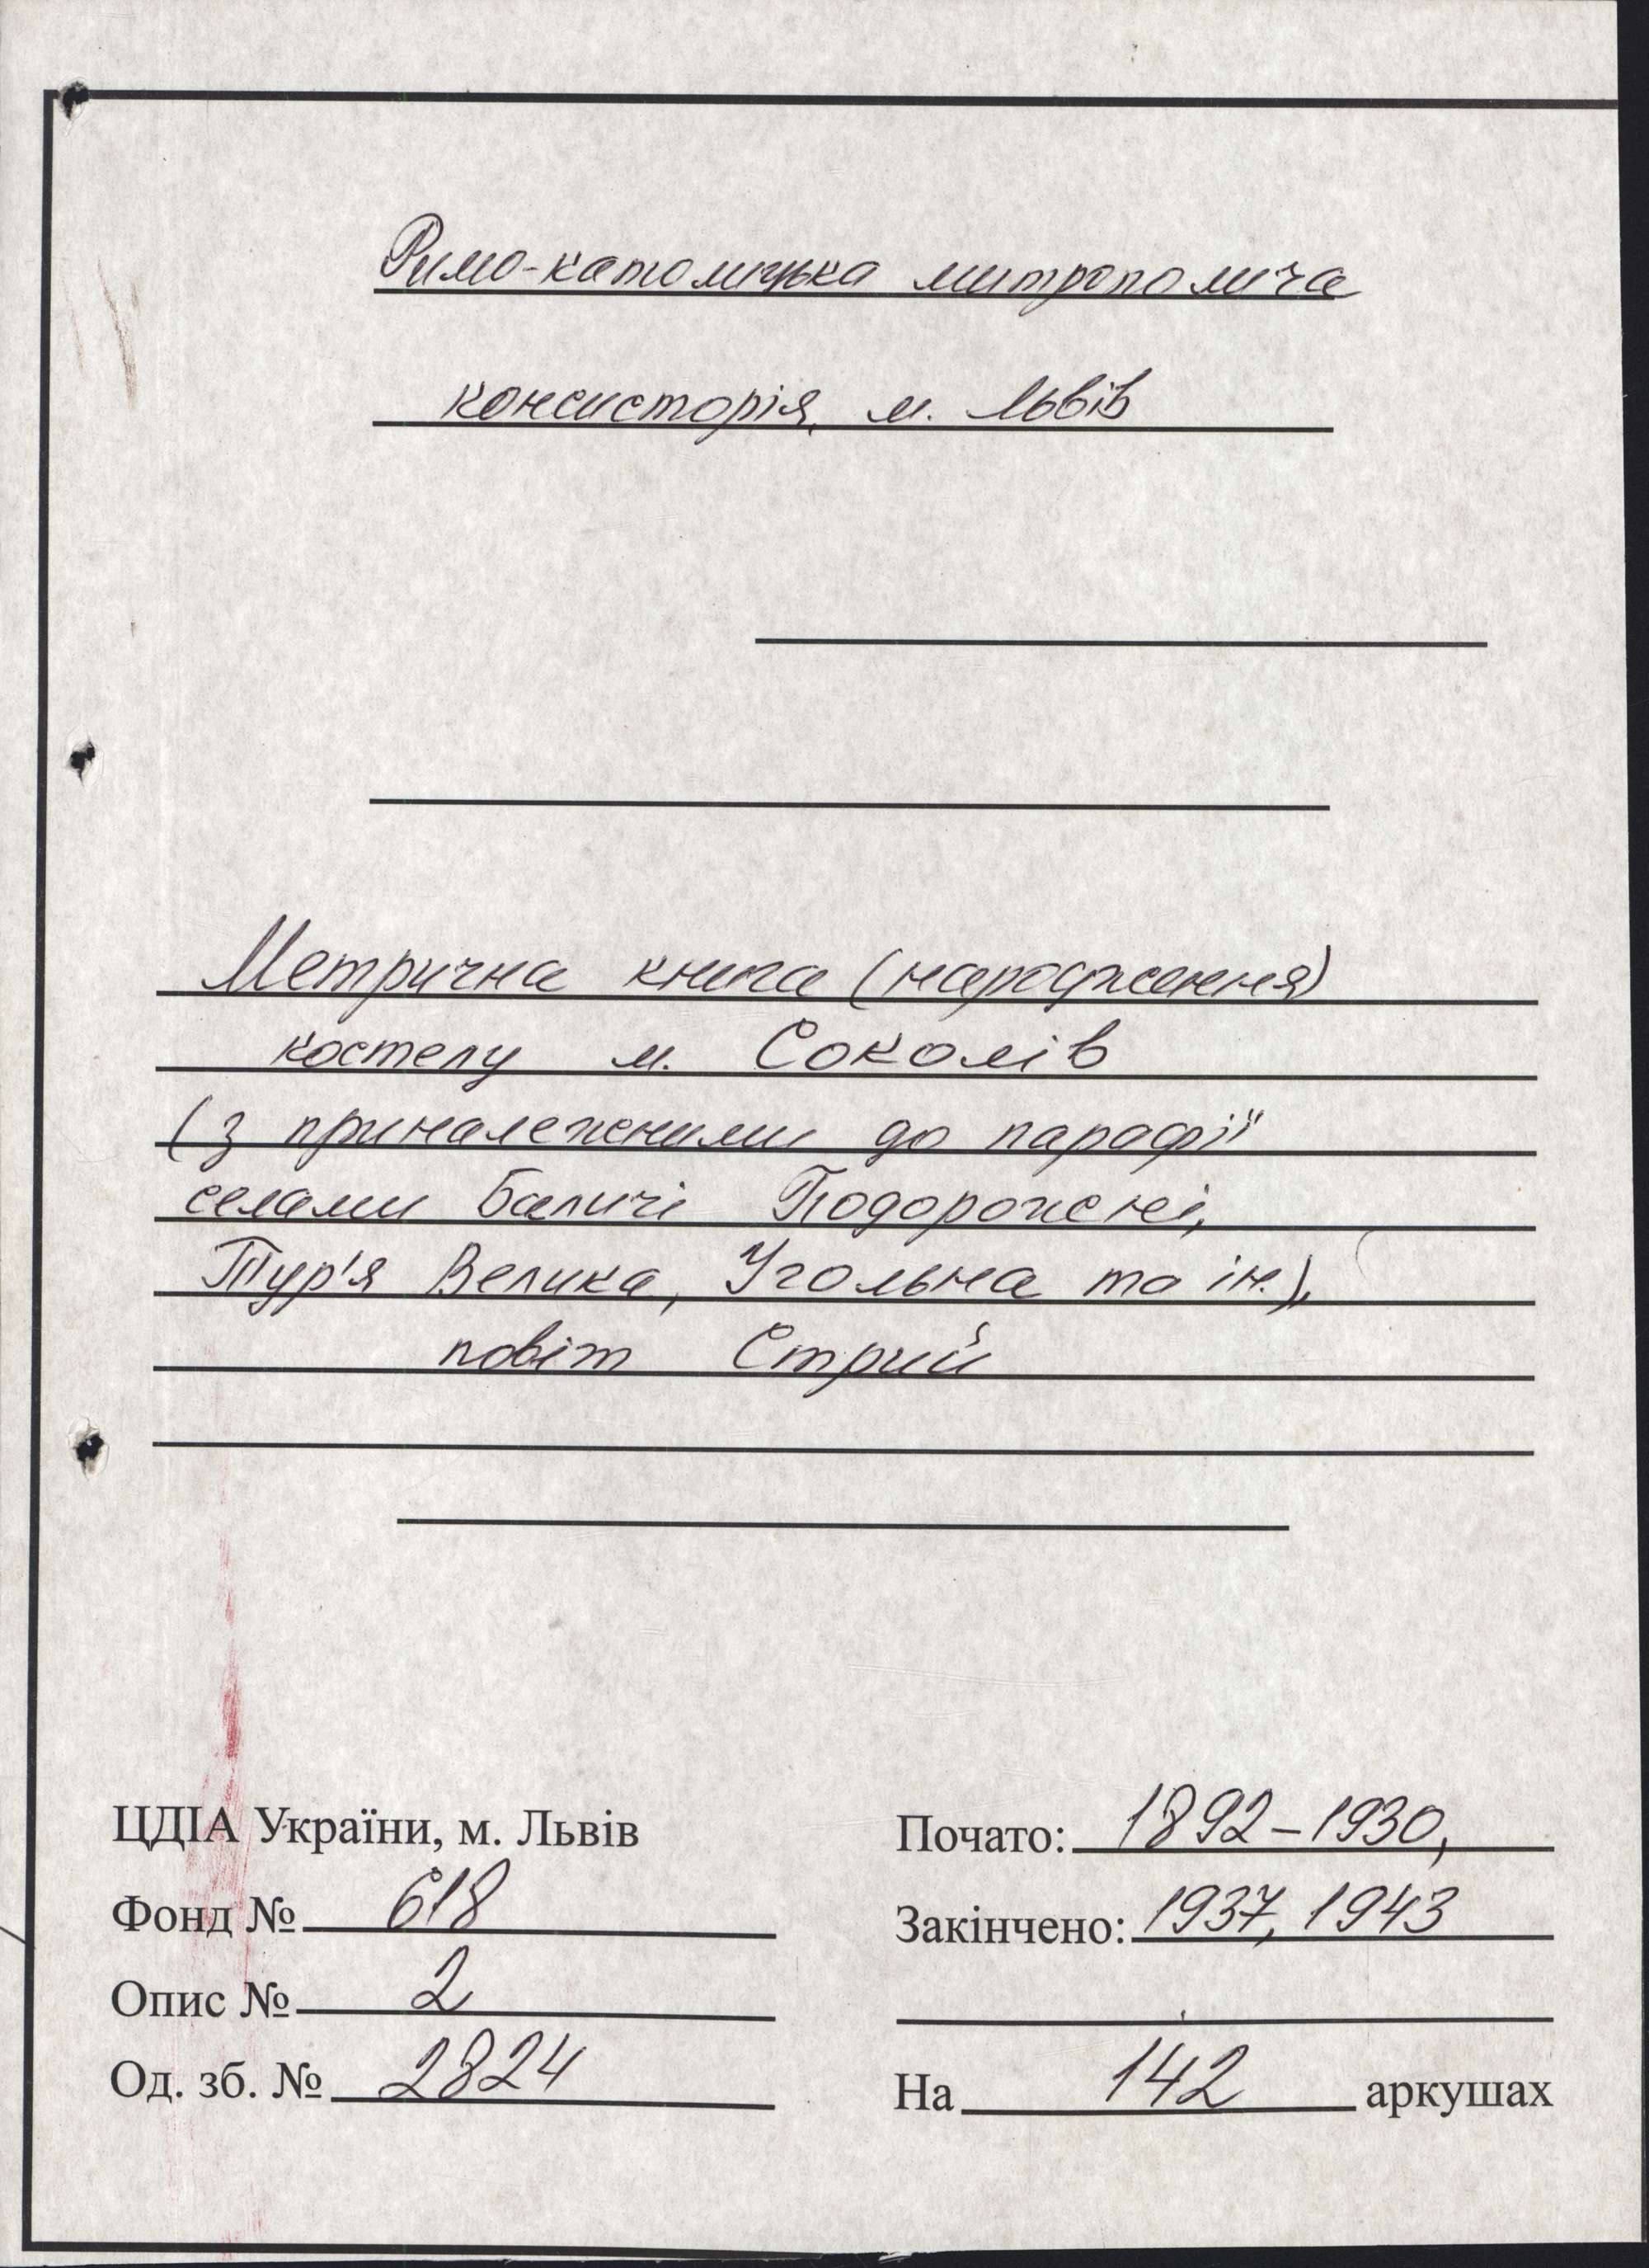 Римо-католицька митрополича
консисторія, м. Львів
Метрична книга (народження)
костелу м. Соколів
(з приналежними до парафії
селами Баличі Подорожні,
Тур'я Велика, Угольна та ін.),
повіт Стрий
ЦДІА України, м. Львів
Фонд № 618
Опис № 2
Од. зб. № 2824
Почато: 1892-1930,
Закінчено: 1937, 1943
На 142 аркушах